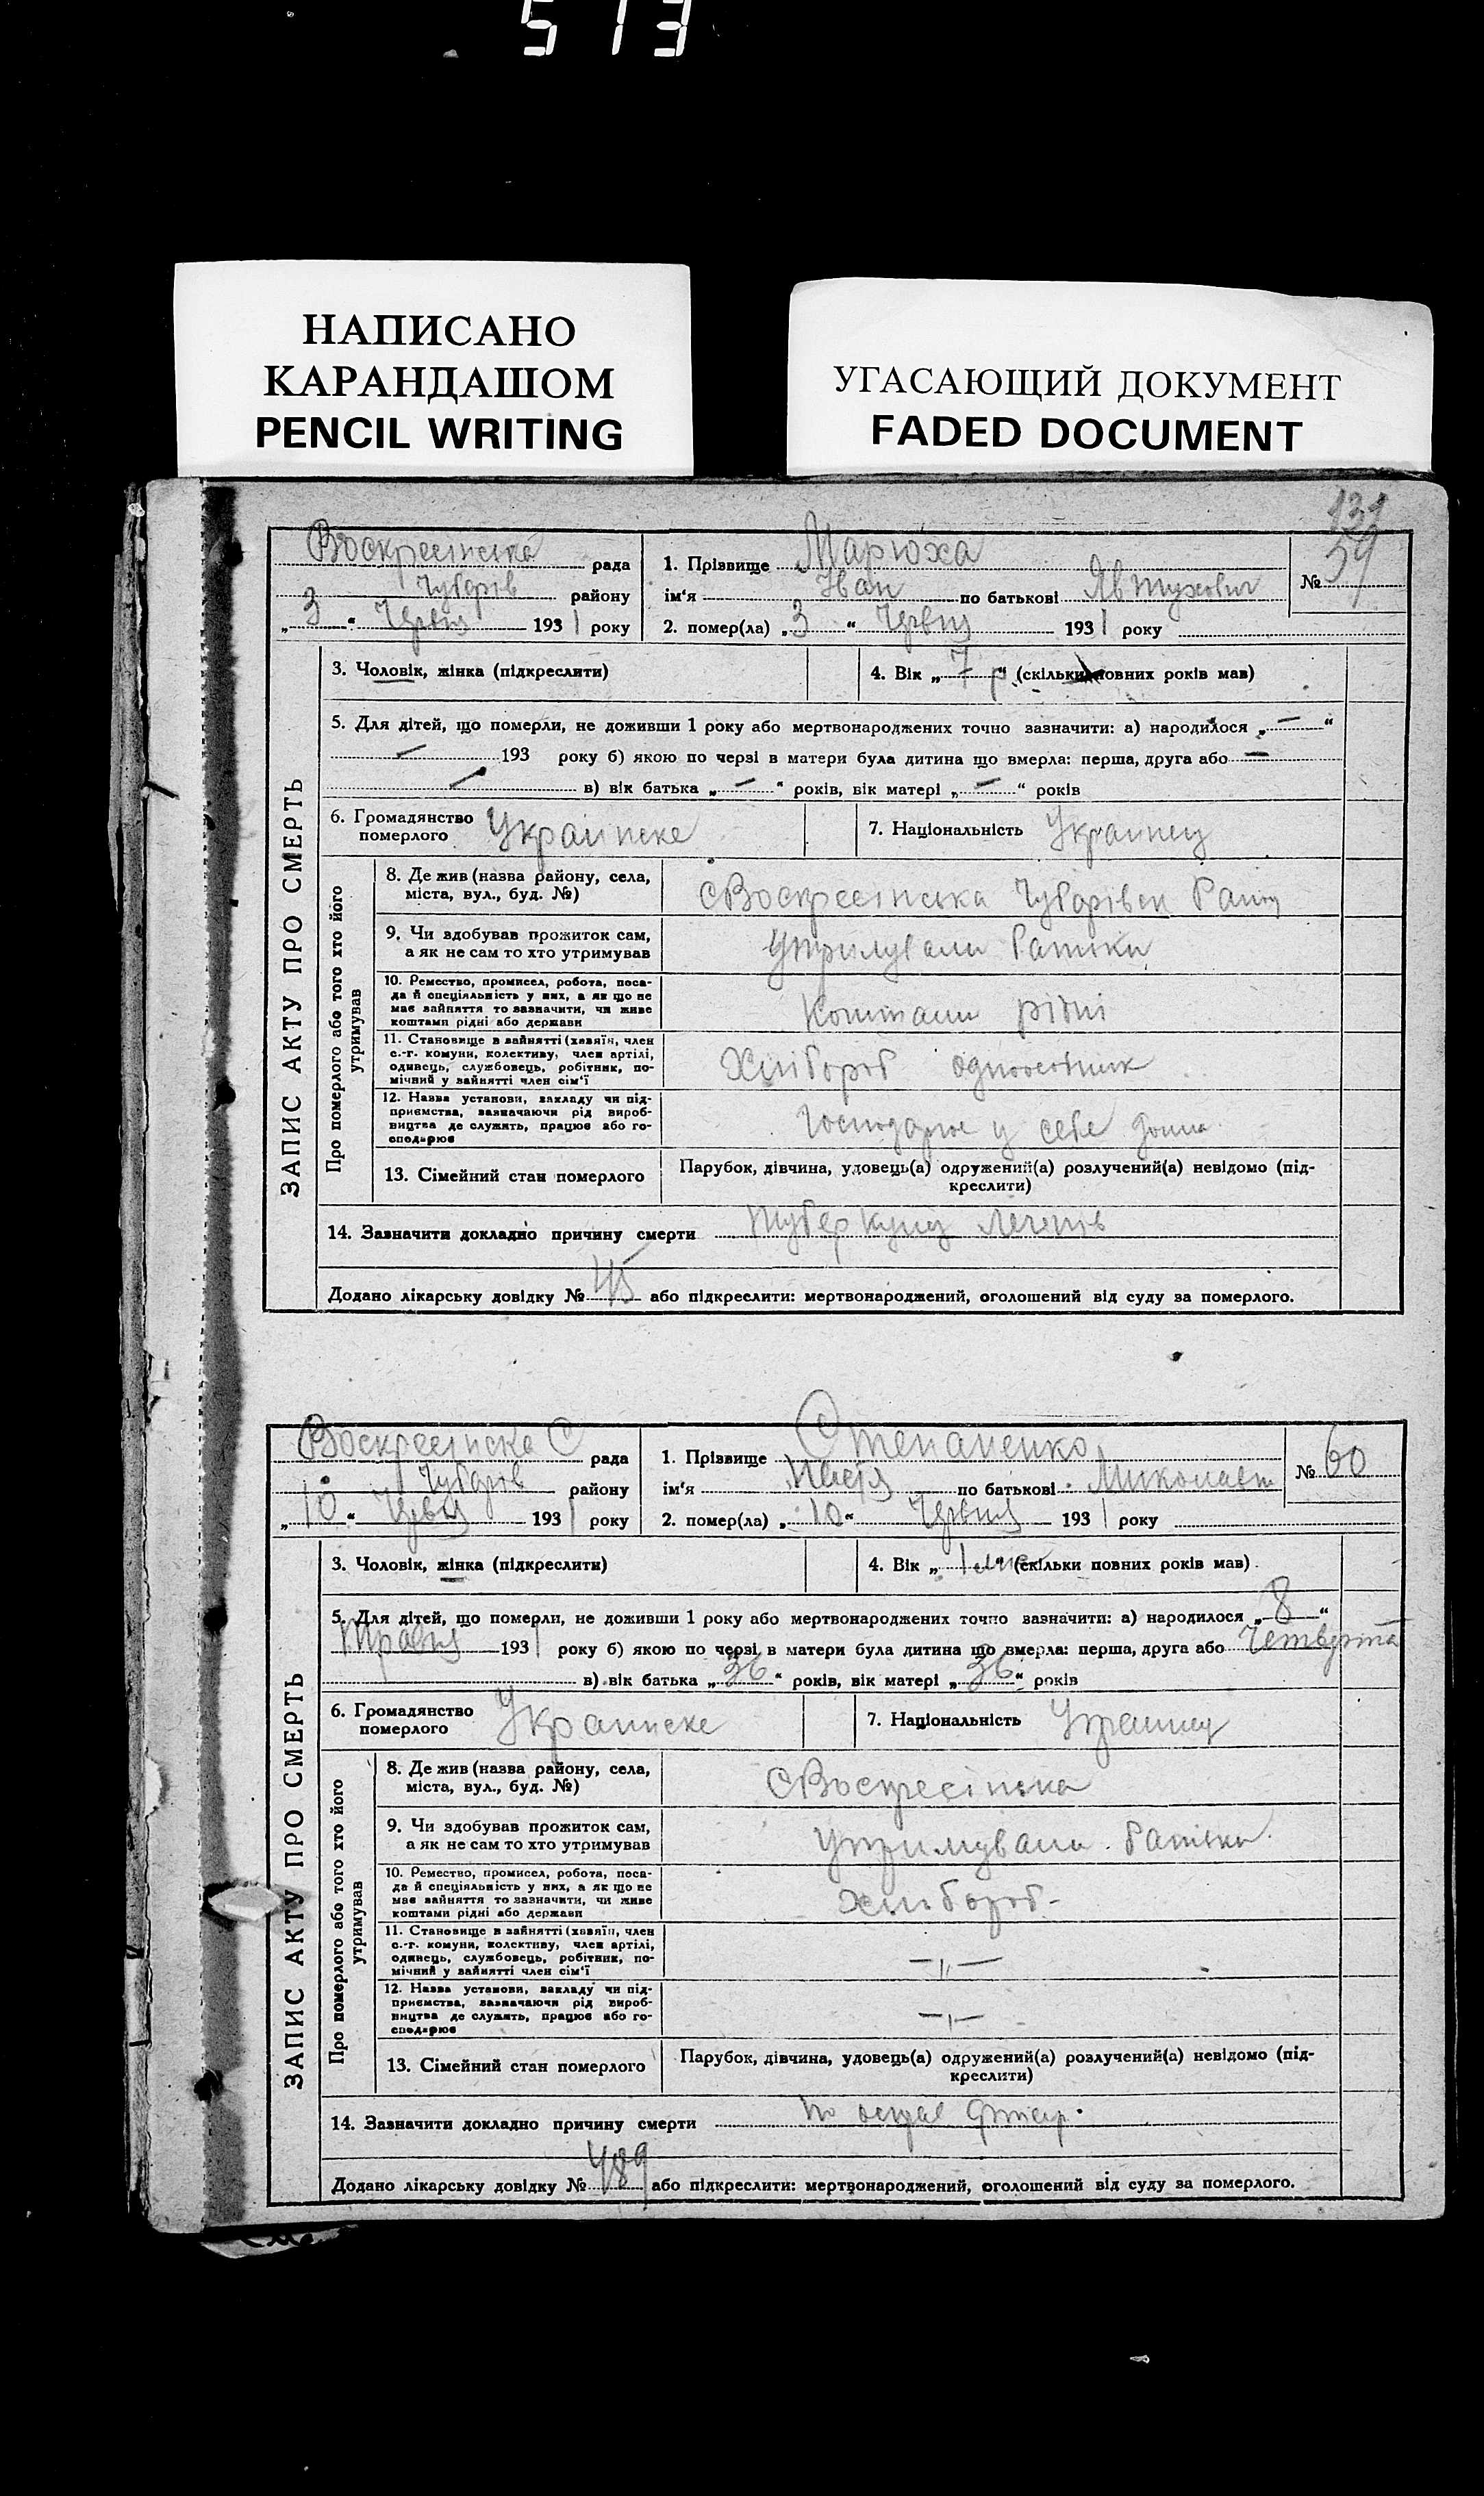 513
НАПИСАНО
КАРАНДАШОМ
PENCIL WRITING
УГАСАЮЩИЙ ДОКУМЕНТ
FADED DOCUMENT
131
ЗАПИС АКТУ ПРО СМЕРТЬ
Воскресінська рада
Чубарів району
„3“ Червня 1931 року
1. Прізвище Марюха
ім'я Іван по батькові Явтухович
№ 59
2. помер(ла) „3“ Червня 1931 року
3. Чоловік, жінка (підкреслити)
4. Вік „7 р“ (скільки повних років мав)
5. Для дітей, що померли, не доживши 1 року або мертвонароджених точно зазначити: а) народилося „—“
— 193 року б) якою по черзі в матери була дитина що вмерла: перша, друга або —
— в) вік батька „—“ років, вік матері „—“ років
6. Громадянство
померлого Украинске
7. Національність Украинец
Про померлого або того хто його
утримував
8. Де жив (назва району, села,
міста, вул., буд. №)
С Воскресінська Чубарівск Раину
9. Чи здобував прожиток сам,
а як не сам то хто утримував
Утримували батьки
10. Ремество, промисел, робота, поса-
да й спеціяльність у них, а як що не
має зайняття то зазначити, чи живе
коштами рідні або держави
Коштами рідні
11. Становище в зайнятті (хазяїн, член
с.-г. комуни, колективу, член артілі,
одинець, службовець, робітник, по-
мічний у зайнятті член сім'ї
Хлібороб одноосібник
12. Назва установи, закладу чи під-
приємства, зазначаючи рід вироб-
ництва де служить, працює або го-
сподарює
Господарює у себе дома
13. Сімейний стан померлого
Парубок, дівчина, удовець(а) одружений(а) розлучений(а) невідомо (під-
креслити)
14. Зазначити докладно причину смерти Туберкулез легенів
Додано лікарську довідку № 45 або підкреслити: мертвонароджений, оголошений від суду за померлого.
ЗАПИС АКТУ ПРО СМЕРТЬ
Воскресінска С рада
Чубарів району
„10“ Червня 1931 року
1. Прізвище Степаненко
ім'я по батькові
№ 60
2. помер(ла) „10“ Червня 1931 року
3. Чоловік, жінка (підкреслити)
4. Вік „1 міс“ (скільки повних років мав)
5. Для дітей, що померли, не доживши 1 року або мертвонароджених точно зазначити: а) народилося „8“
Травня 1931 року б) якою по черзі в матери була дитина що вмерла: перша, друга або Четверта
в) вік батька „36“ років, вік матері „36“ років
6. Громадянство
померлого Украинске
7. Національність Украинец
Про померлого або того хто його
утримував
8. Де жив (назва району, села,
міста, вул., буд. №)
С Воскресінська
9. Чи здобував прожиток сам,
а як не сам то хто утримував
Утримували батьки
10. Ремество, промисел, робота, поса-
да й спеціяльність у них, а як що не
має зайняття то зазначити, чи живе
коштами рідні або держави
Хлібороб
11. Становище в зайнятті (хазяїн, член
с.-г. комуни, колективу, член артілі,
одинець, службовець, робітник, по-
мічний у зайнятті член сім'ї
—„—
12. Назва установи, закладу чи під-
приємства, зазначаючи рід вироб-
ництва де служить, працює або го-
сподарює
—„—
13. Сімейний стан померлого
Парубок, дівчина, удовець(а) одружений(а) розлучений(а) невідомо (під-
креслити)
14. Зазначити докладно причину смерти
Додано лікарську довідку № 489 або підкреслити: мертвонароджений, оголошений від суду за померлого.